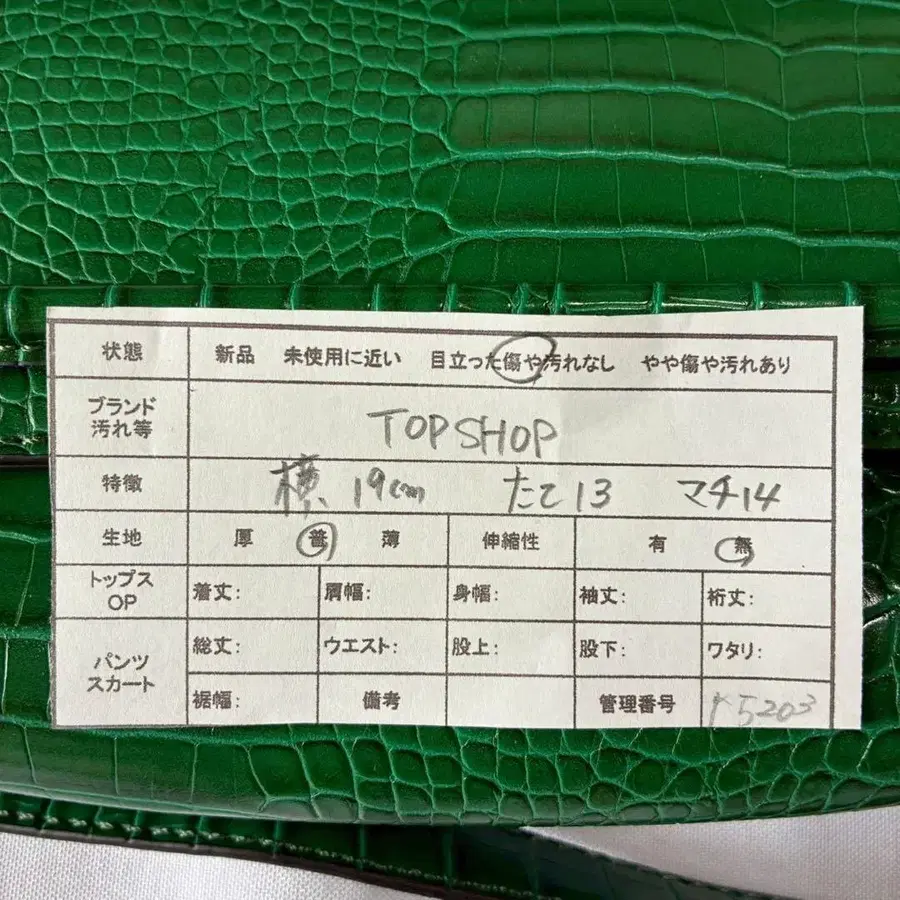 状態 新品 未使用に近い 目立った傷や汚れなし やや傷や汚れあり
ブランド
汚れ等
TOPSHOP
特徴 横 19cm たて13 マチ14
生地 厚 普 薄 伸縮性 有 無
トップス
OP
着丈: 肩幅: 身幅: 袖丈: 裄丈:
パンツ
スカート
総丈: ウエスト: 股上: 股下: ワタリ:
裾幅: 備考 管理番号 K5203